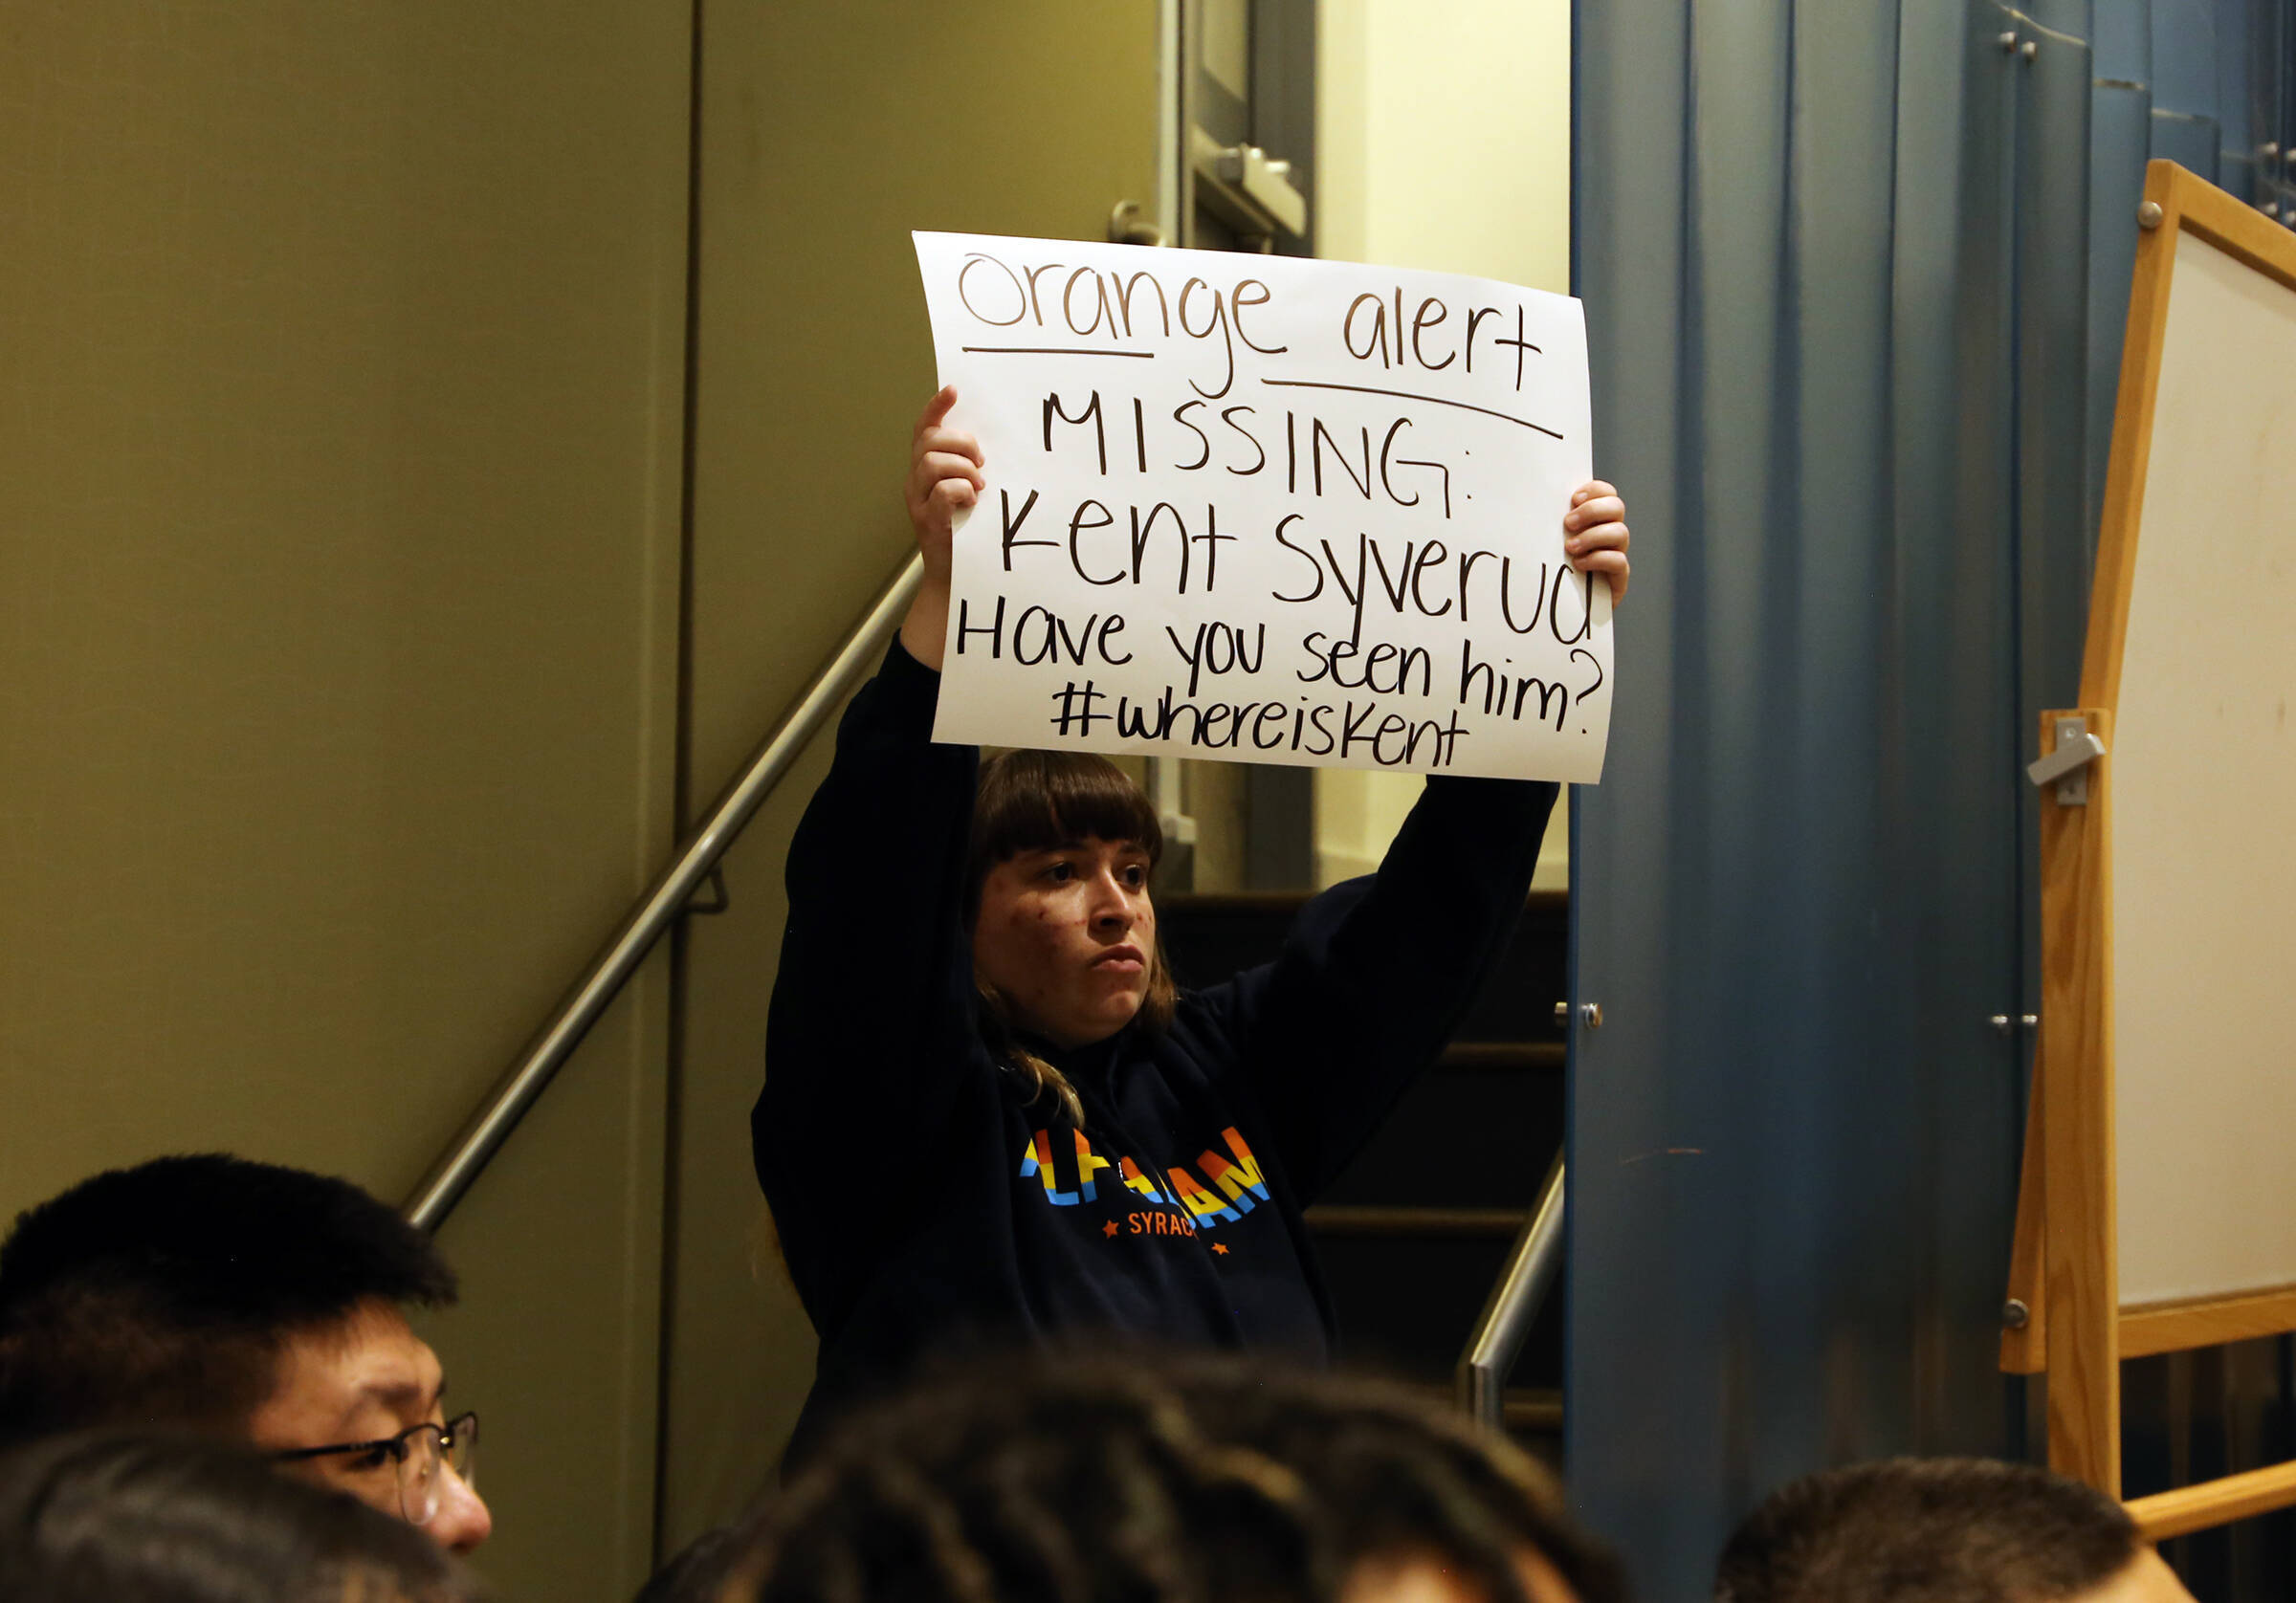 Orange alert
MISSING:
Kent Syverud
Have you seen him?
#whereisKent